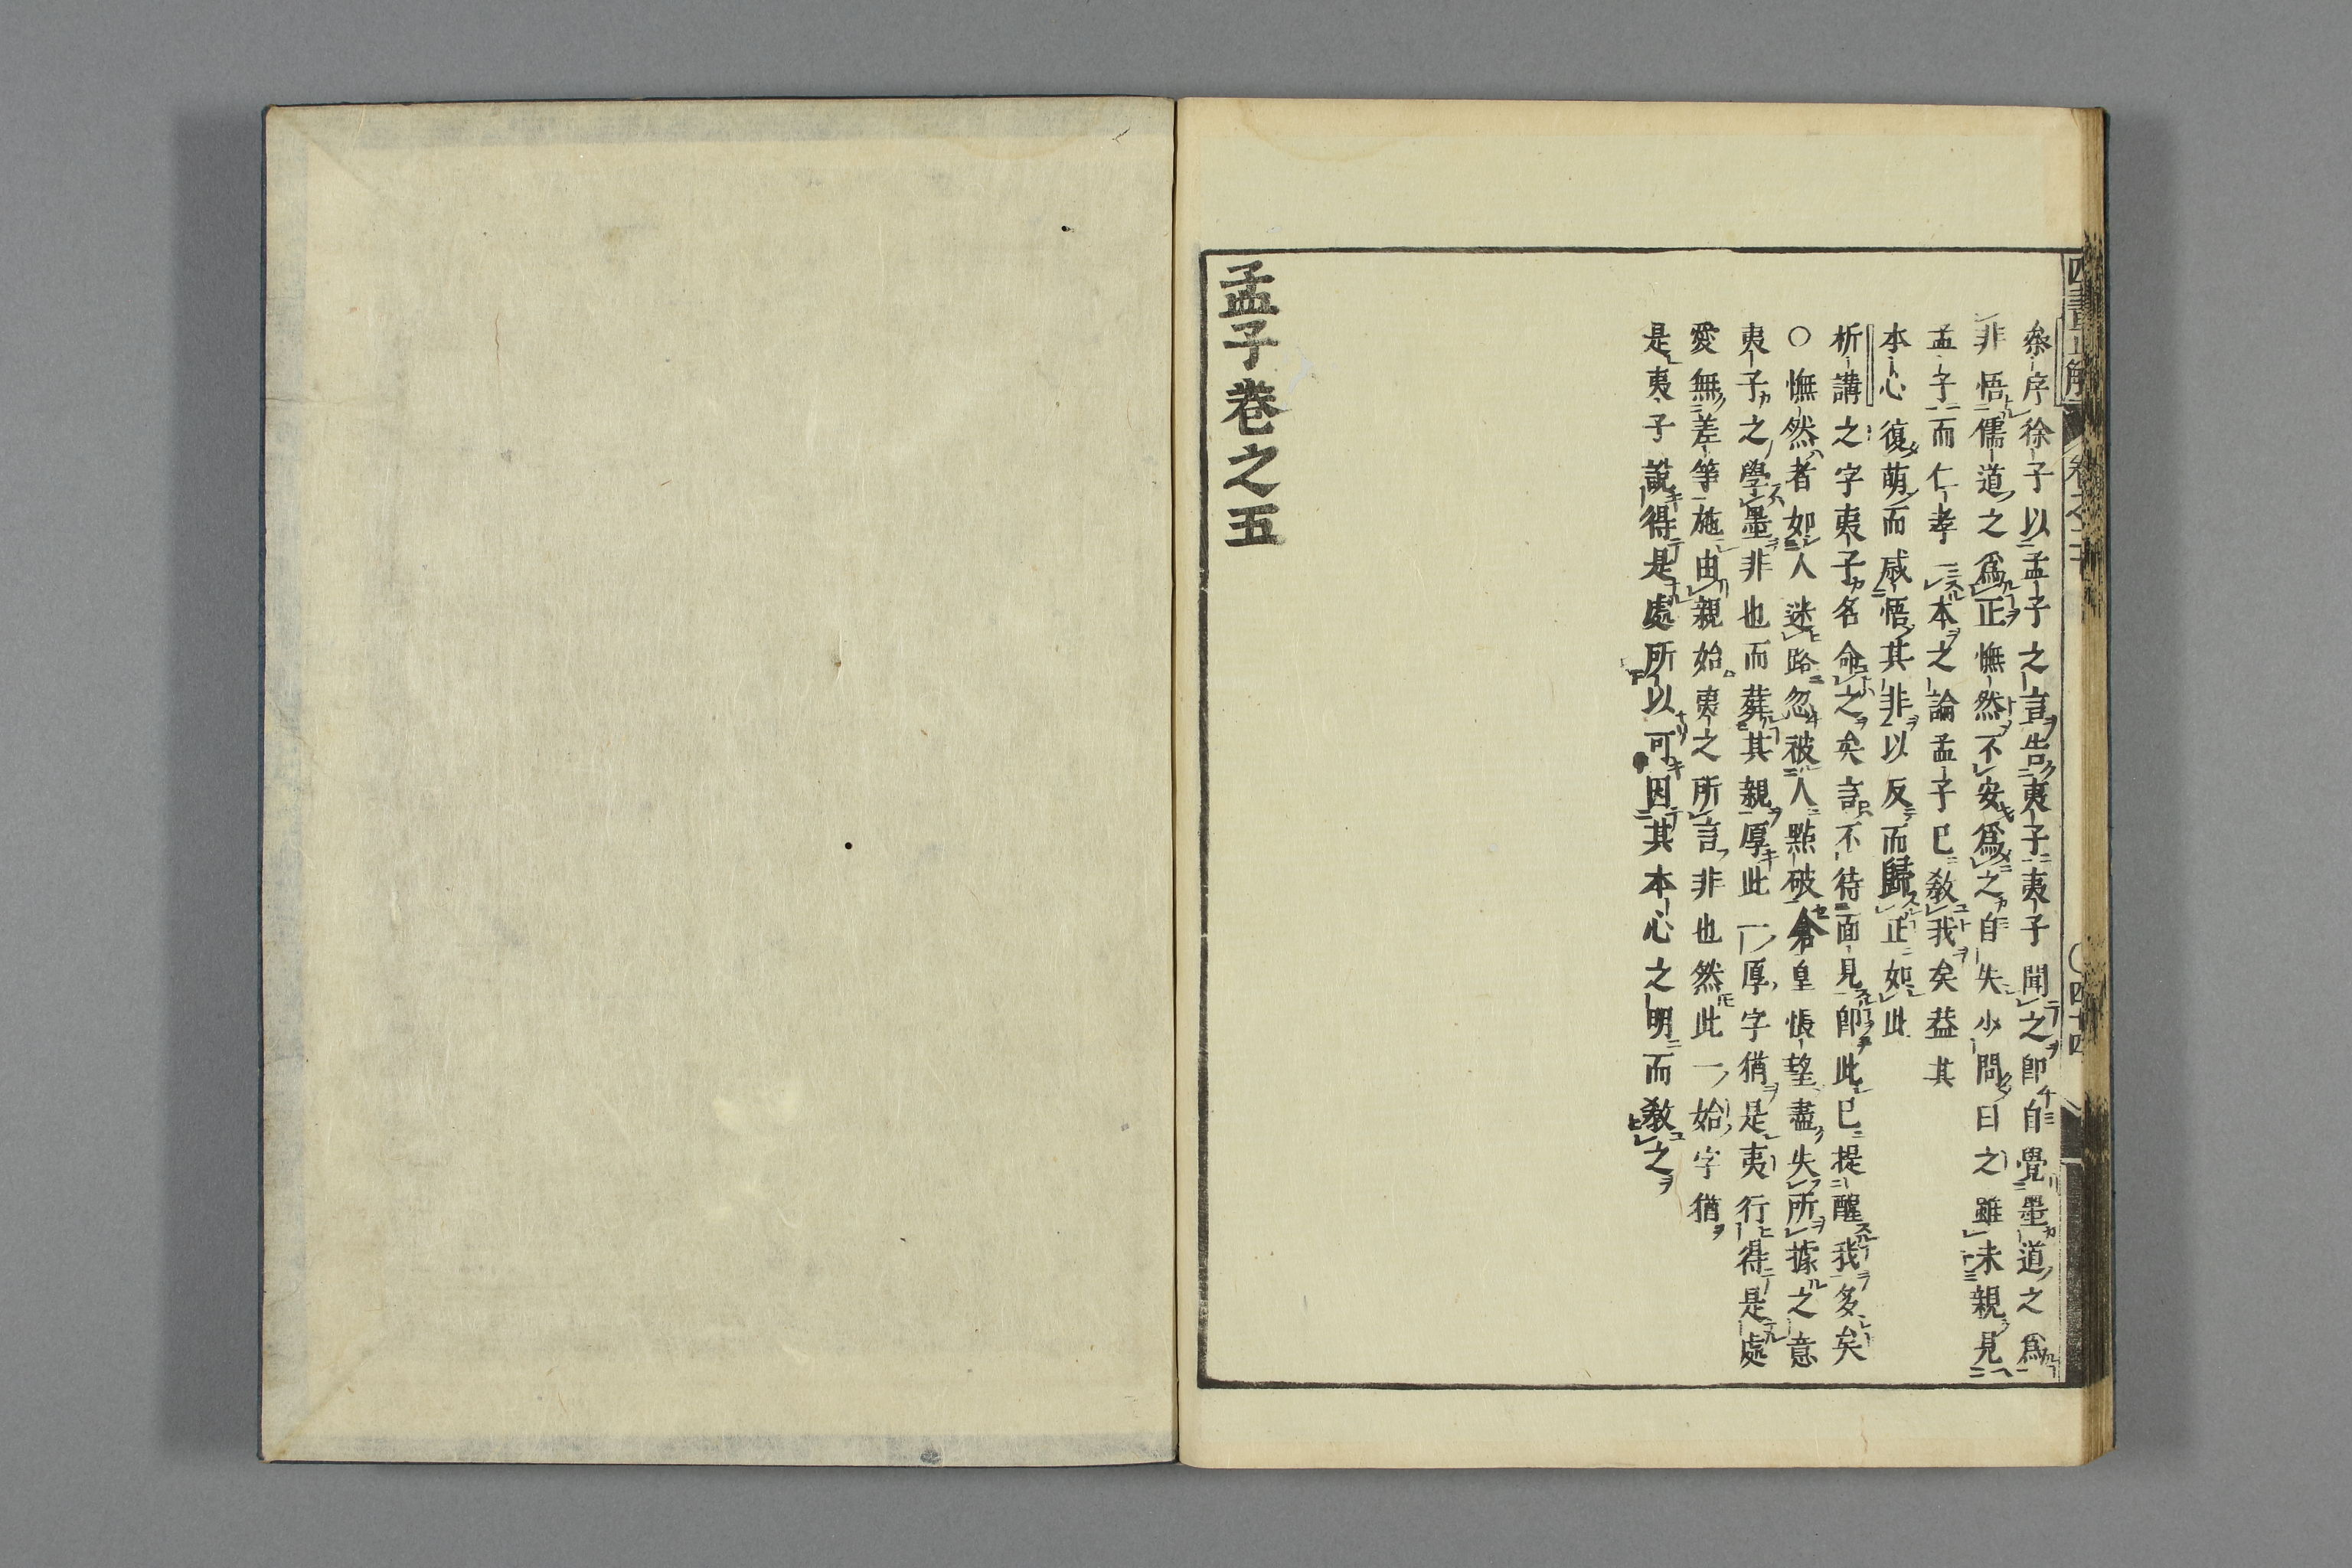 四書正解 卷之二十 〇四十四
叅序徐子以孟子之言告夷子夷子聞之卽自覺墨道之爲
非悟儒道之爲正憮然不安爲之自失少問曰之雖未親見
孟子而仁孝一本之論孟子已敎我矣葢其
本心復萌而感悟其非以反而歸正如此
析講之字夷子名命之矣言不待面見卽此已提醒我多矣
〇憮然者如人迷路忽被人點破倉皇悵望盡失所據之意
夷子之學墨非也而葬其親厚此一厚字猶是夷行得是處
愛無差等施由親始夷之所言非也然此一始字猶
是夷子說得是處所以可因其本心之明而敎之
孟子卷之五